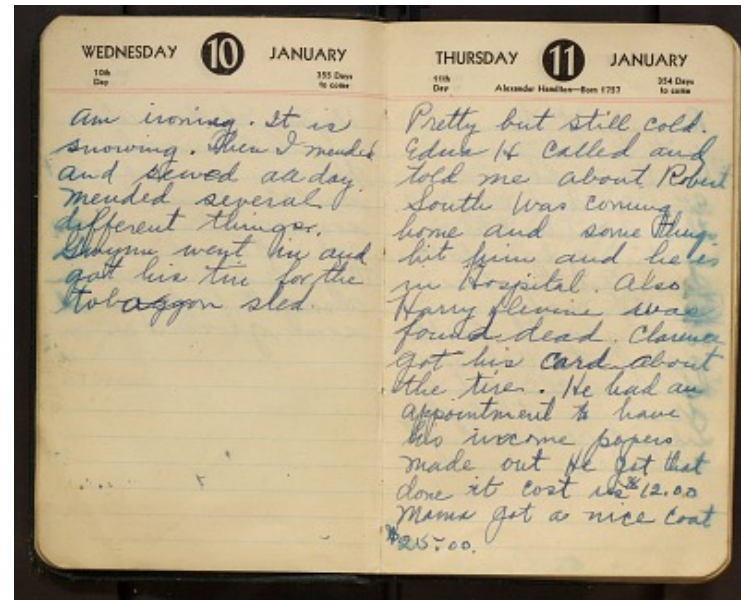 WEDNESDAY 10 JANUARY
10th Day
355 Days to come
am ironing. It is
snowing. Then I mended
and sewed all day.
Mended several
different things.
Gwynn went in and
got his tin for the
tobaggon sled.
THURSDAY 11 JANUARY
11th Day
Alexander Hamilton—Born 1757
354 Days to come
Pretty but still cold.
Edna H called and
told me about Robert
South was coming
home and some thug
hit him and he is
in Hospital. Also
Harry was
found dead. Clarence
got his card about
the tires. He had an
appointment to have
his income papers
made out He got that
done it cost us $12.00
Mama got a nice coat
$25.00.